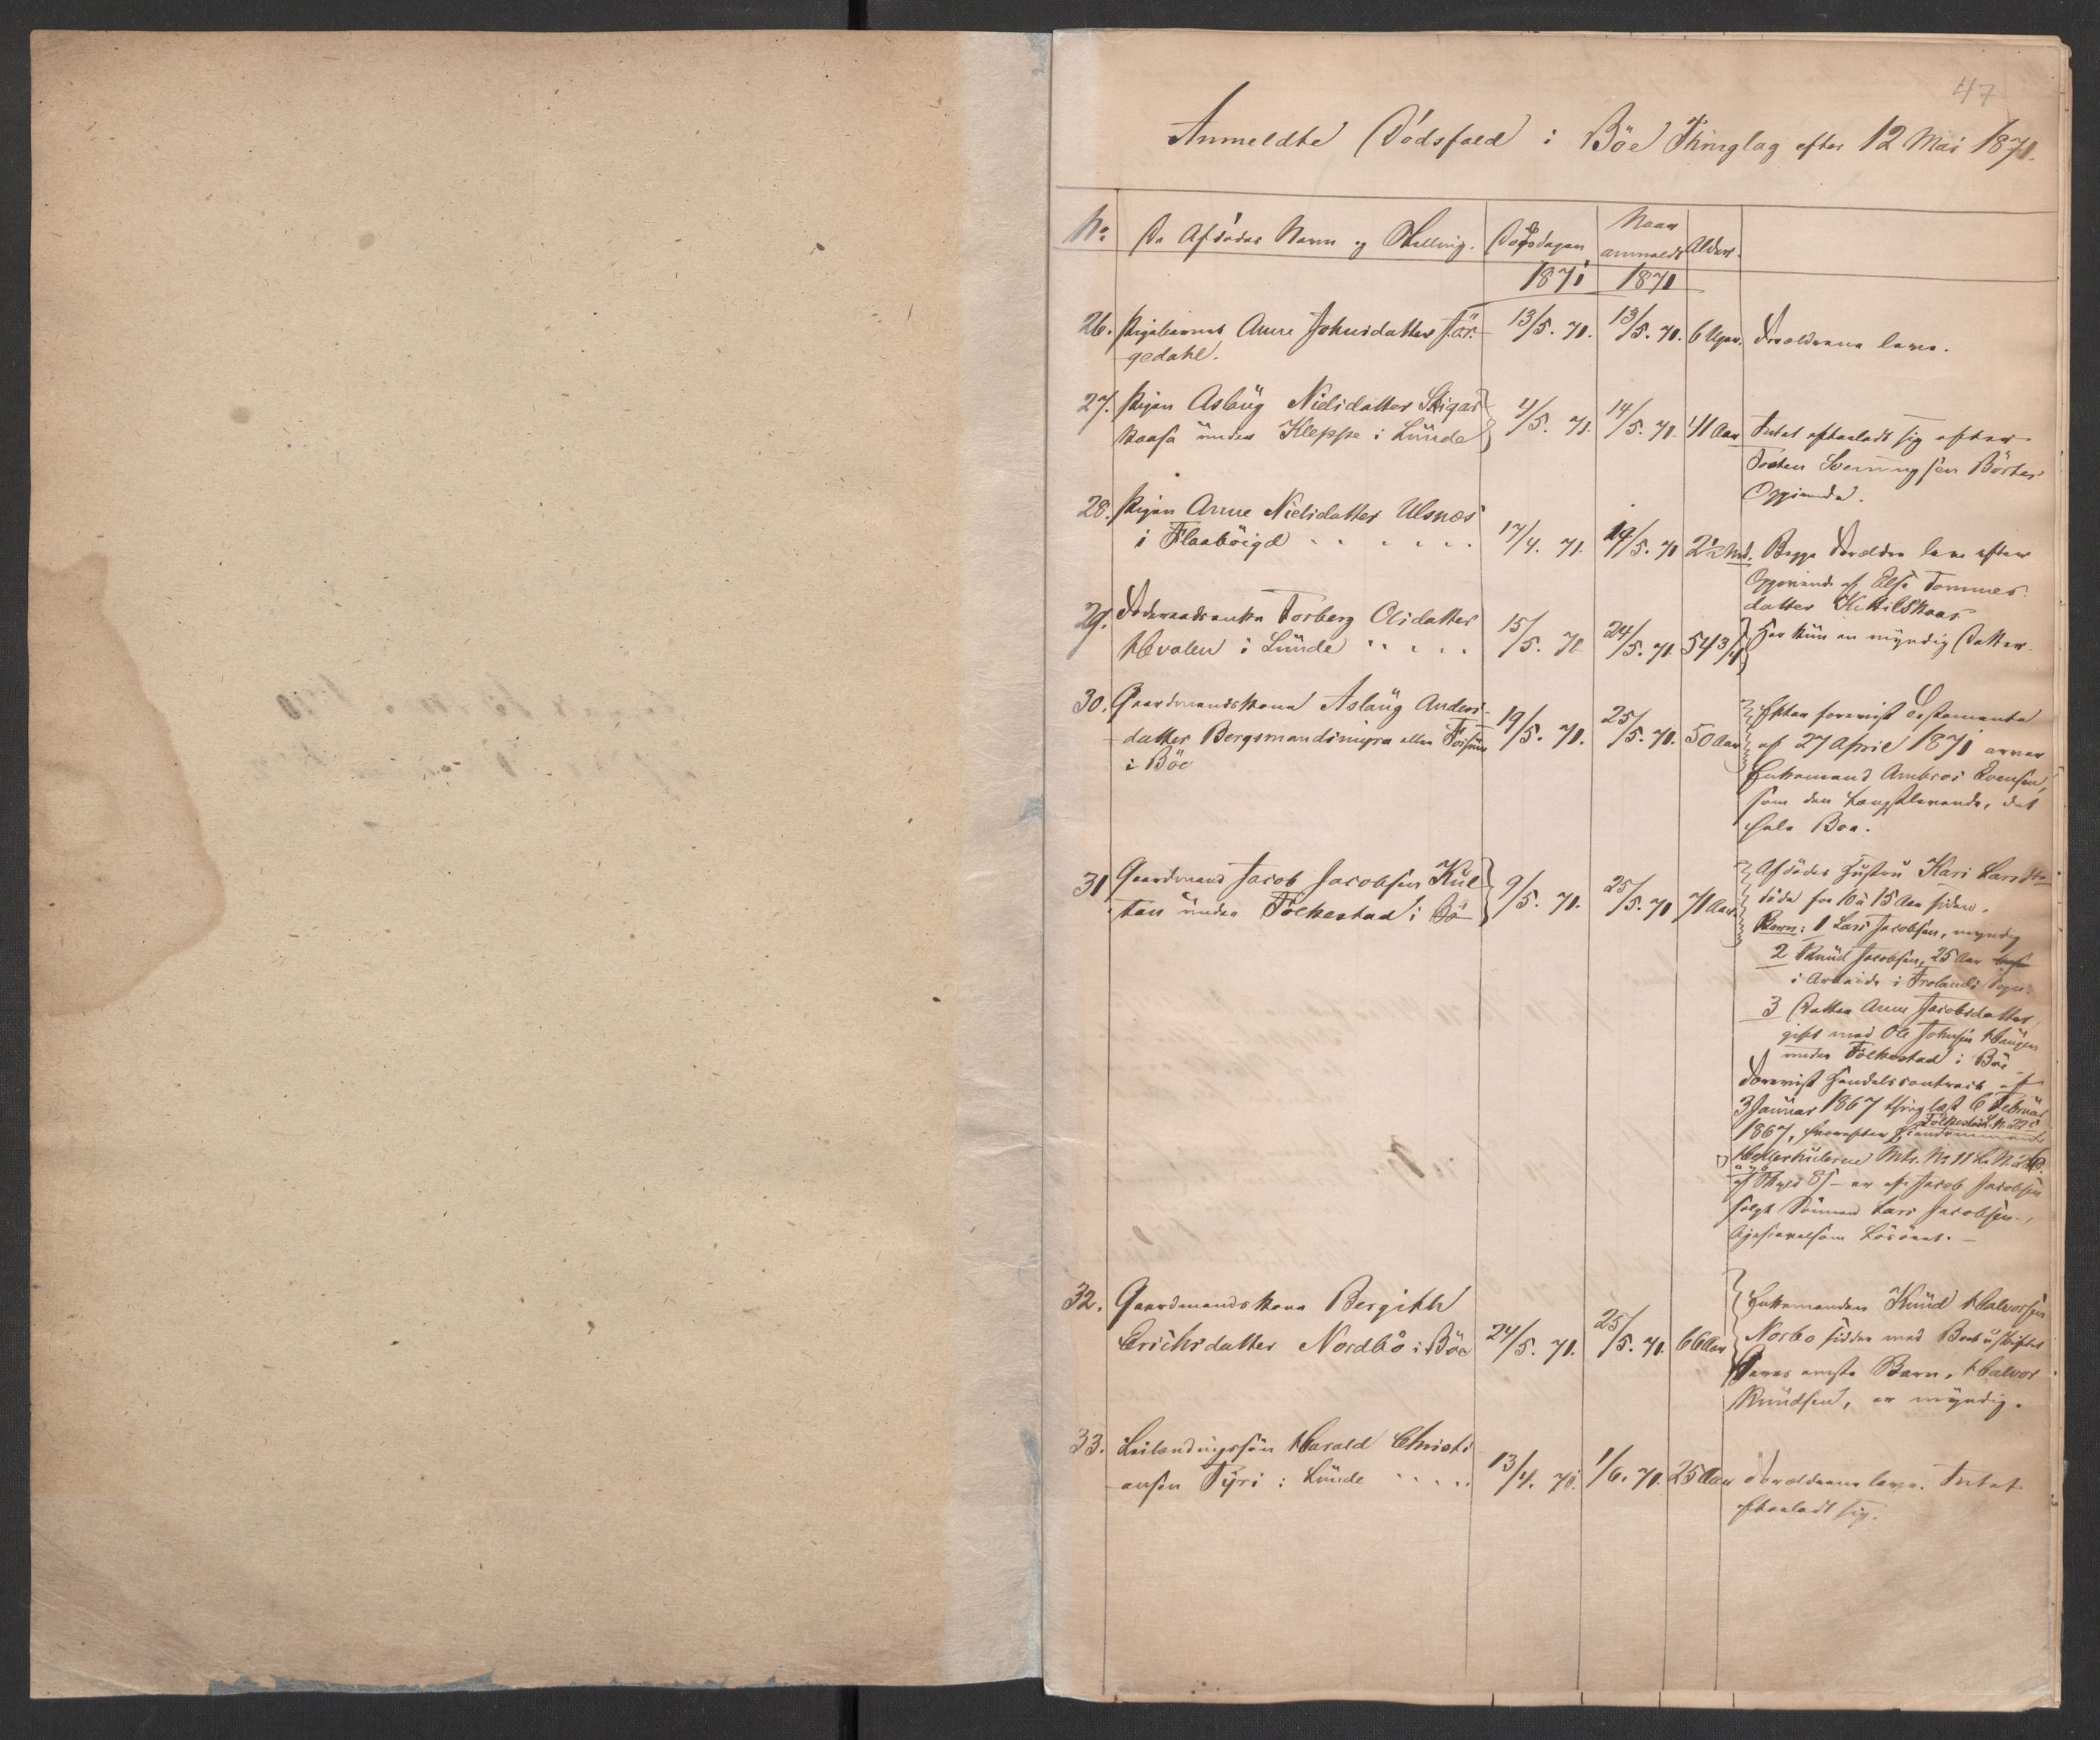 47
Anmeldte Dödsfald i Böe Thinglag efter 12 Mai 1871.
No De Afdödes Navn og Stilling. Dödsdagen Naar anmeldt Alder.
1871 1871
26. Pigebarnet Anne Johnsdatter
gedahl. 13/5. 71. 13/5. 71. 6 Uger. Forældrene leve.
27. Pigen Aslaug Nielsdatter Stigar
kaasa under Kleppe i Lunde 4/5. 71. 14/5. 71. 41 Aar Intet efterladt sig efter
Svenningsen
Opgivende.
28. Pigen Anne Nielsdatter Ulsnes
i Flaabögd 17/4. 71. 19/5. 71 2½ Md. Begge Forældre leve efter
Opgivende af Else Tommes
datter Kittilskaas
29. Föderaadsenke Torberg Olsdatter
Hvalen i Lunde 15/5. 71 24/5. 71. 54 3/4 Har kun en myndig Datter.
30. Gaardmandskone Aslaug Anders
datter Bergsmandsmyra eller
i Böe 19/5. 71. 25/5. 71. 50 Aar Efter forevist Testamente
af 27 April 1871 arver
Enkemand Ambros Evensen,
som den Længstlevende, det
hele Boe.
31 Gaardmand Jacob Jacobsen Kul
ten under Folkestad i Bö 9/5. 71. 25/5. 71 71 Aar. Afdödes Hustru Kari Larsd
döde for 10 à 15 Aar siden.
Börn: 1 Lars Jacobsen, myndig
2 Knud Jacobsen, 25 Aar
i Arbeide i Frolands Sogn.
3 Datter Anne Jacobsdatter,
gift med Ole Johnsen Haugen
under Folkestad i Böe
Forevist Handelscontract af
3 Januar 1867 thinglæst 6 Februar
Folkestad L. N. 22
1867, hvorefter Eiendommene
Mtr. No 11 L. N.
af Skyld er af Jacob Jacobsen
solgt Sönnen Lars Jacobsen,
ligesaavelsom Lösöret.
32. Gaardmandskone Bergith
Erichsdatter Nordbö i Böe 24/5. 71. 25/5. 71. 66 Aar Enkemanden Knud Halvorsen
Norbo sidder med Boet uskiftet
Deres eneste Barn, Halvor
Knudsen, er myndig.
33. Leilændingssön Harald Christi
ansen Tyri i Lunde 13/4. 71. 1/6. 71. 25 Aar Forældrene leve. Intet
efterladt sig.